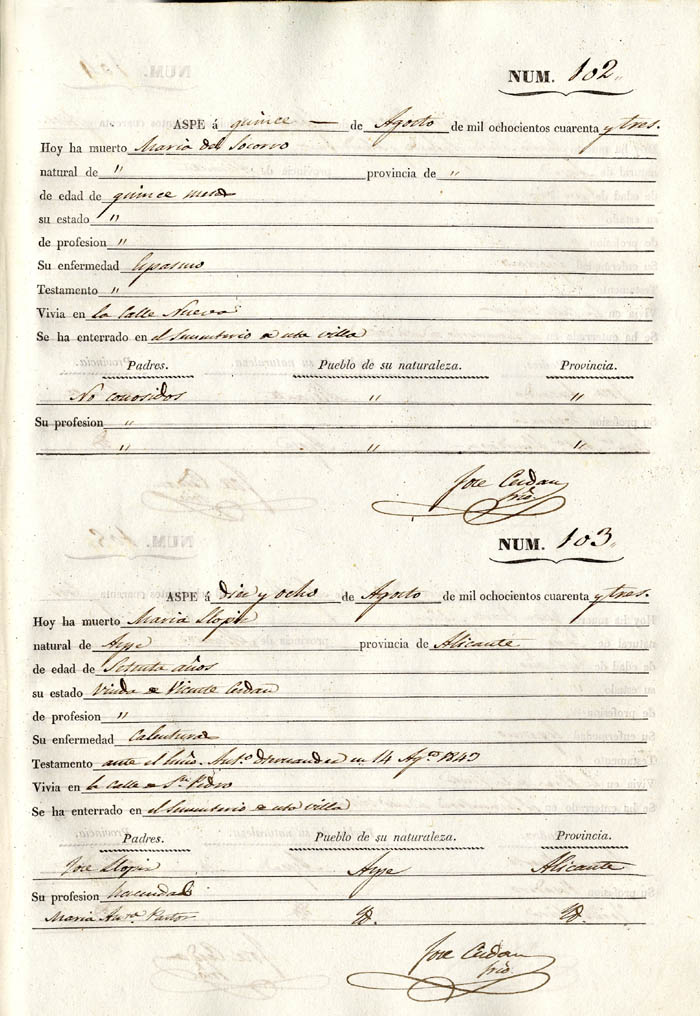 NUM. 102
ASPE á quince de Agosto de mil ochocientos cuarenta y tres.
Hoy ha muerto Maria del Socorro
natural de " provincia de "
de edad de quince meses
su estado "
de profesion "
Su enfermedad Espasmo
Testamento "
Vivia en la Calle Nueva
Se ha enterrado en el Sementerio de esta villa
Padres. Pueblo de su naturaleza. Provincia.
No conosidos " "
Su profesion "
" " "
Jose Cerdan
NUM. 103
ASPE á diez y ocho de Agosto de mil ochocientos cuarenta y tres.
Hoy ha muerto Maria Llopis
natural de Aspe provincia de Alicante
de edad de Setenta años
su estado Viuda de Vicente Cerdan
de profesion "
Su enfermedad Calenturas
Testamento ante el Antº. en 14 Agto 1843
Vivia en la Calle de Sn. Pedro
Se ha enterrado en el Sementerio de esta villa
Padres. Pueblo de su naturaleza. Provincia.
Jose Llopis Aspe Alicante
Su profesion hacendado
Maria Pastor Id. Id.
Jose Cerdan